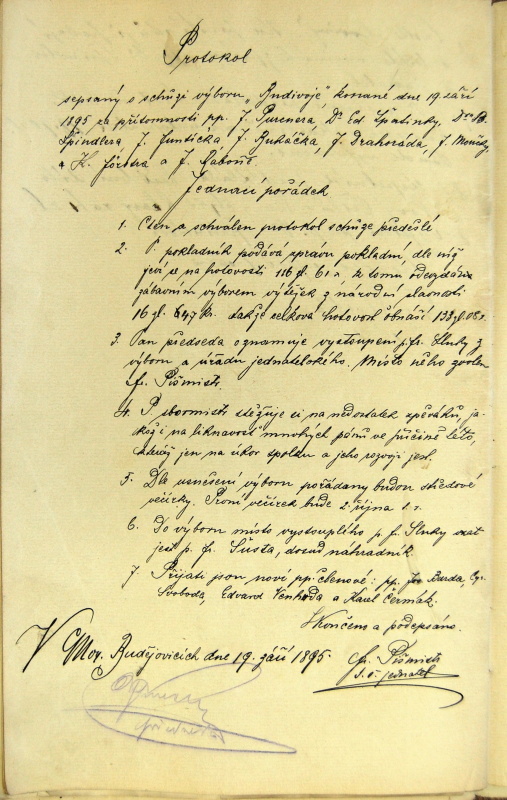 Protokol
sepsaný o schůzi výboru „Budivoje" konané dne 19 září
1895 za přítomnosti pp. J. Purenera, Dr Ed Špatinky, Dra B.
Špindlera, J. Funtička, J. Rukáčka, J. Drahoráda, J.
a K. Förstra a J.
Jednací pořádek
1. Čten a schválen protokol schůze předešlé
2. P. pokladník podává zprávu pokladní, dle níž
jeví se na hotovosti 116 zl. 61 k tomu
zábavním výborem výtěžek z národní slavnosti
16 zl. 47 kr. takže celková hotovost obnáší 133 zl. 08 k.
3. Pan předseda oznamuje vystoupení p. fr. Sluky z
výboru a úřadu jednatelského. Místo něho zvolen
fr. Pišmistr.
4. P. sbormistr stěžuje si na nedostatek zpěváků, ja-
kož i na liknavost mnohých pánů ve příčině této,
kterážto jen na úkor spolku a jeho rozvoji jest.
5. Dle usnešení výboru pořádany budou středové
večírky. První večírek bude 2. října t. r.
6. Do výboru místo vystouplého p. f. Sluky vzat
jest p. fr. Šusta, dosud náhradník.
7. Přijati jsou noví pp. členové: pp. Jos Burda, Cyr.
Svoboda, Edvard Venhoda a Karel Čermák.
Skončeno a podepsáno.
V Čes. Budějovicích dne 19. září 1895.
fr. Pišmistr
t. č. jednatel
předseda